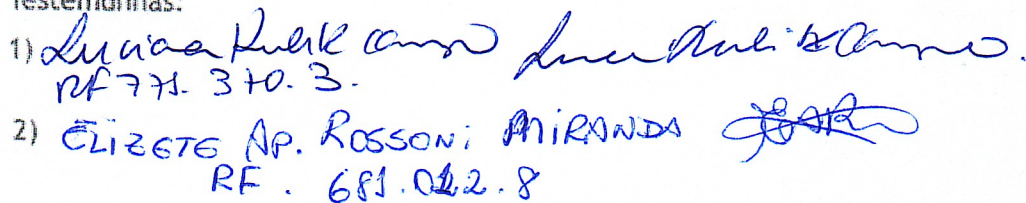 Testemunhas:
1) Luciana Kulik Camp
RF 771.370.3.
2) ELIZETE AP. ROSSONI MIRANDA
RF. 681.012.8